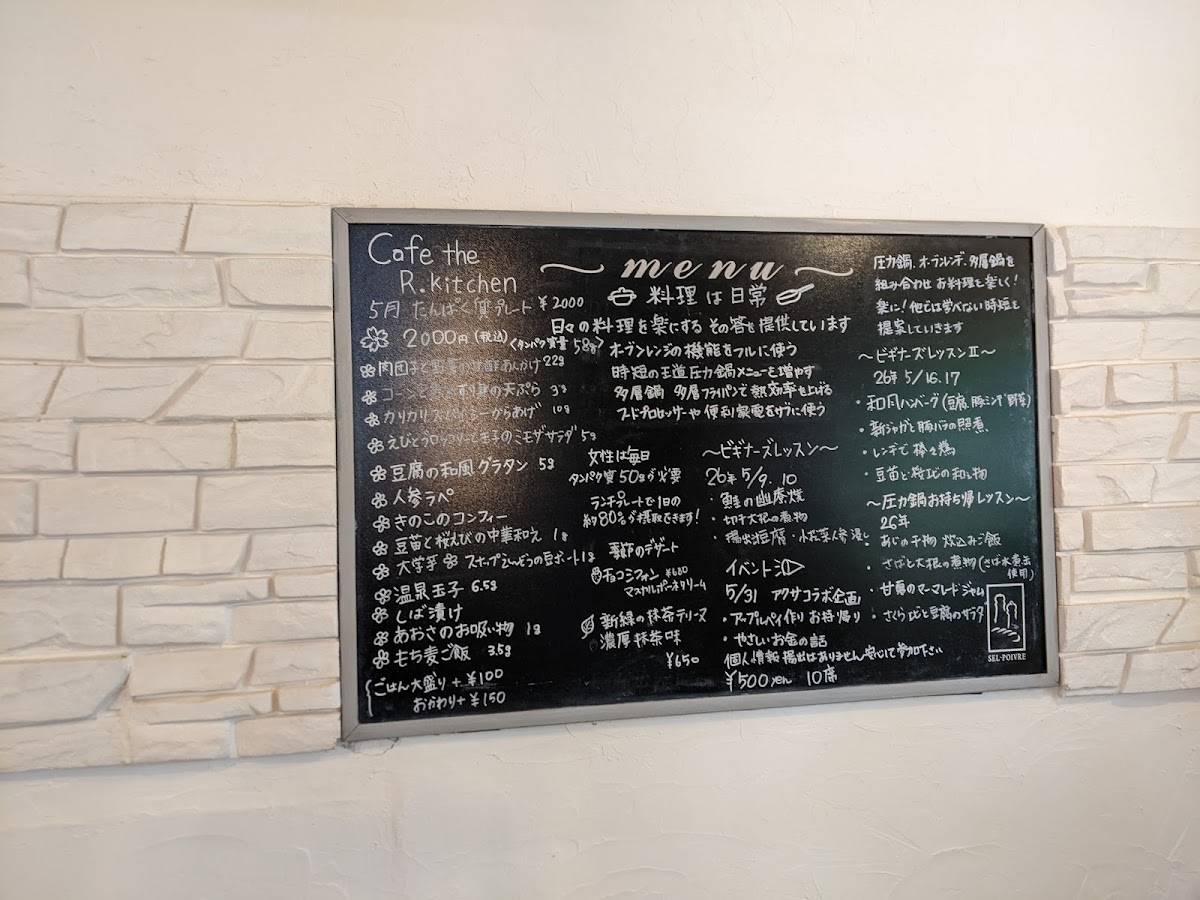 Cafe the
R.kitchen
5月 たんぱく質プレート ¥2000
2000円(税込)
<タンパク質量 58g>
肉団子と野菜の甘酢あんかけ 22g
すり身の天ぷら 3g
カリカリスパイシーからあげ 10g
えびとブロッコリーと玉子のミモザサラダ 5g
豆腐の和風グラタン 5g
人参ラペ
きのこのコンフィー
豆苗と桜えびの中華和え 1g
大学芋 スナップえんどうの豆ポート 1g
温泉玉子 6.5g
しば漬け
あおさのお吸い物 1g
もち麦ご飯 3.5g
ごはん大盛り+¥100
おかわり+¥150
~menu~
料理は日常
日々の料理を楽にする その答を提供しています
オーブンレンジの機能をフルに使う
時短の王道圧力鍋メニューを増やす
多層鍋 多層フライパンで熱効率を上げる
フードプロセッサーや便利家電をサブに使う
女性は毎日
タンパク質50gが必要
ランチプレートで1日の
約80%が摂取できます!
季節のデザート
チョコシフォン ¥680
マスカルポーネクリーム
新緑の抹茶テリーヌ
濃厚抹茶味
¥650
~ビギナーズレッスン~
26年 5/9.10
・鮭の幽庵焼
・切干大根の煮物
・揚出豆腐・小松菜人参浸し
イベント
5/31 アクサコラボ企画
・アップルパイ作り お持帰り
・やさしいお金の話
個人情報提出はありません安心して参加下さい
¥500yen 10席
圧力鍋、オーブンレンヂ、多層鍋を
組み合わせ お料理を楽しく!
楽に!他では学べない時短を
提案していきます
~ビギナーズレッスンⅡ~
26年 5/16.17
・和風ハンバーグ(豆腐 豚ミンチ 野菜)
・新ジャガと豚バラの照煮
・レンチで棒々鶏
・豆苗と桜えびの和え物
~圧力鍋お持ち帰レッスン~
26年
・あじの干物 炊込みご飯
・さばと大根の煮物(さば水煮缶使用)
・甘夏のマーマレードジャム
・さくらえびと豆腐のサラダ
SEL-POIVRE